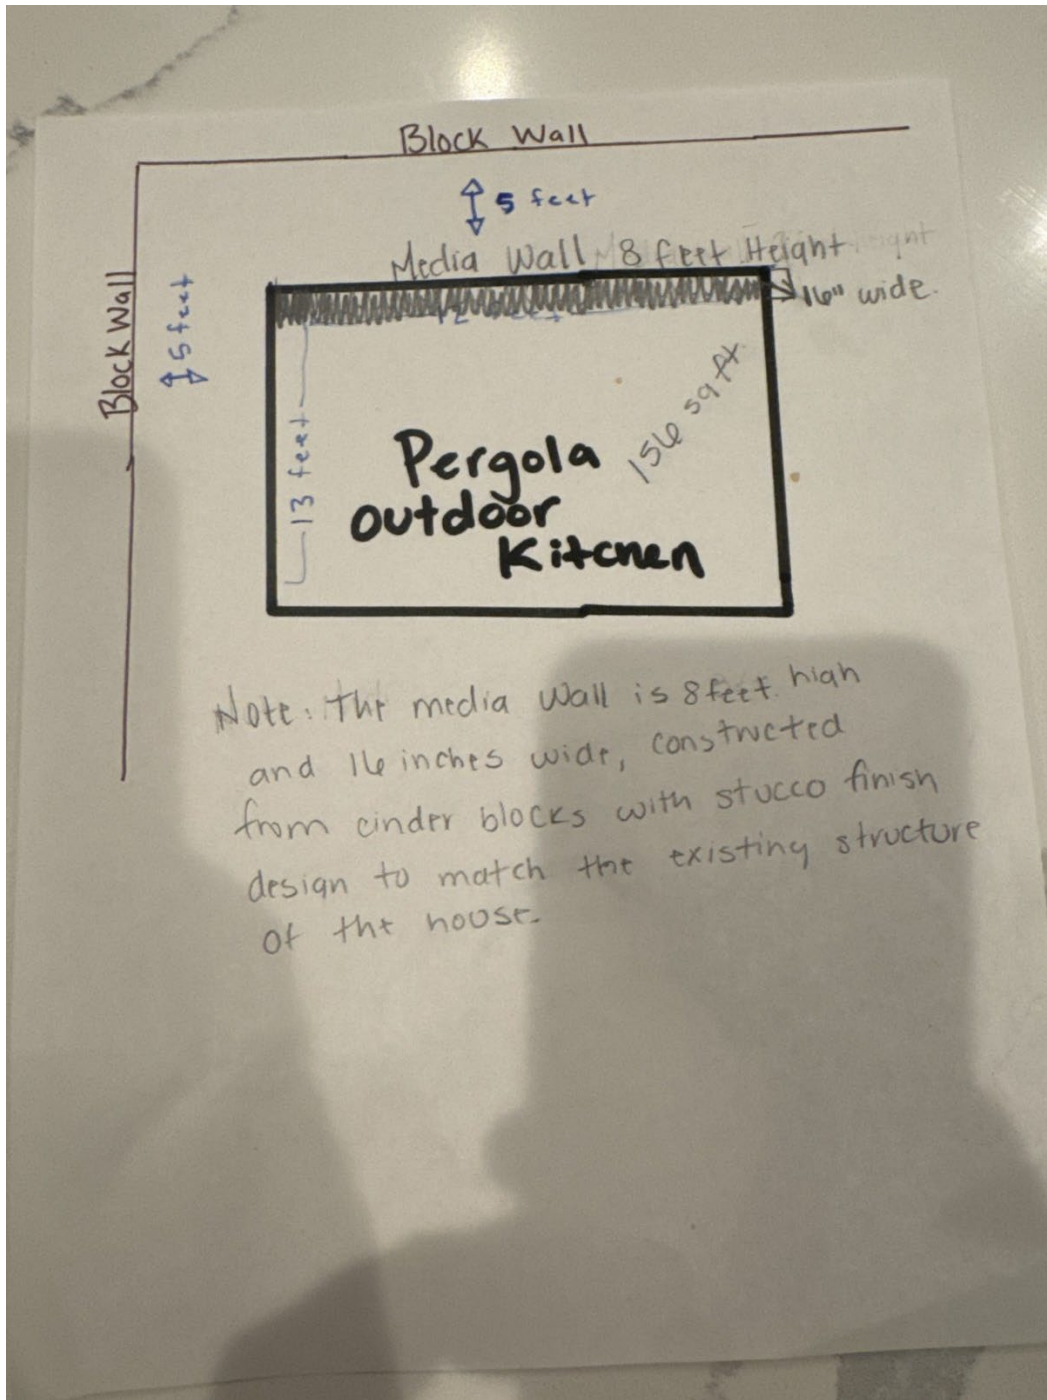 Block Wall
5 feet
Media Wall 8 feet Height
16" wide.
Block Wall
5 feet
12 feet
13 feet
156 sq ft.
Pergola
outdoor
Kitchen
Note: The media wall is 8 feet high
and 16 inches wide, constructed
from cinder blocks with stucco finish
design to match the existing structure
of the house.